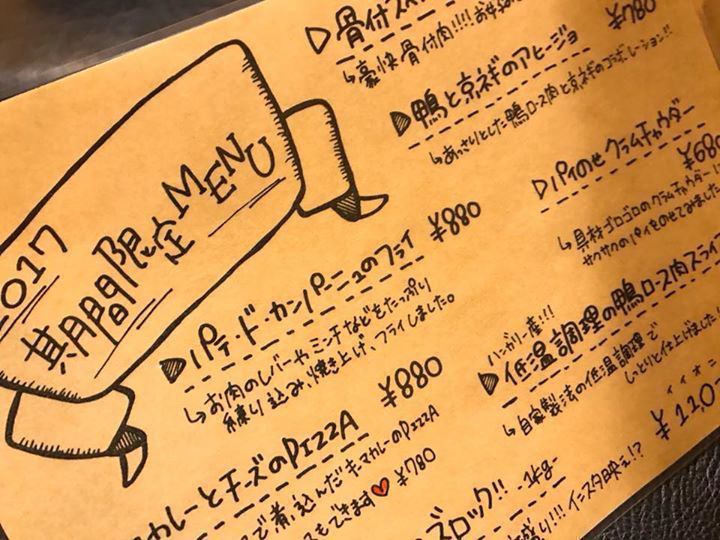 2017
期間限定MENU
▷パテ・ド・カンパーニュのフライ ¥880
↳お肉のレバーやミンチなどをたっぷり
練り込み、焼き上げ、フライしました。
カレーとチーズのPIZZA ¥880
で煮込んだキーマカレーのPIZZA
もできます♥ ¥780
▷骨付ス
↳豪快骨付肉!!!!
¥780
▷鴨と京ネギのアヒージョ
↳あっさりとした鴨ロース肉と京ネギのコラボレーション!!
▷パイのせクラムチャウダー
¥680
↳具材ゴロゴロのクラムチャウダー
サクサクのパイをのせてみました
ハンガリー産!!!
▷低温調理の鴨ロース肉スライ
↳自家製法の低温調理で
しっとりと仕上げました
ズロック!! -1kg-
盛り!!! インスタ映え!?